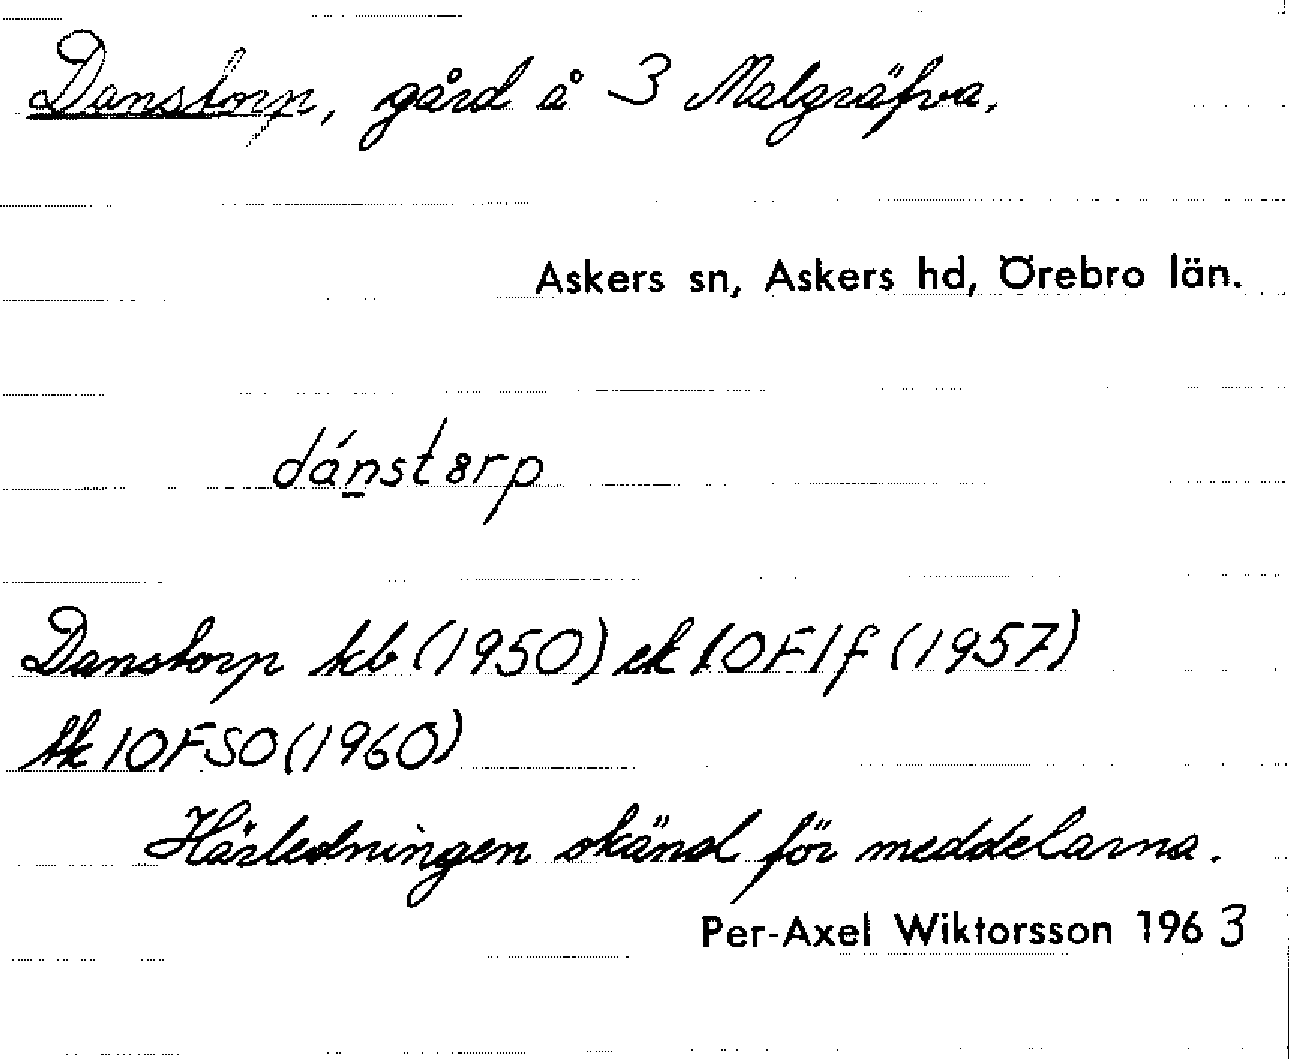 Danstorp, gård å 3 Malgräfva,
Askers sn, Askers hd, Örebro län.
dánstərp
Danstorp kb (1950) ek 10F1f (1957)
tk 10FSO (1960)
Härledningen okänd för meddelarna.
Per-Axel Wiktorsson 1963